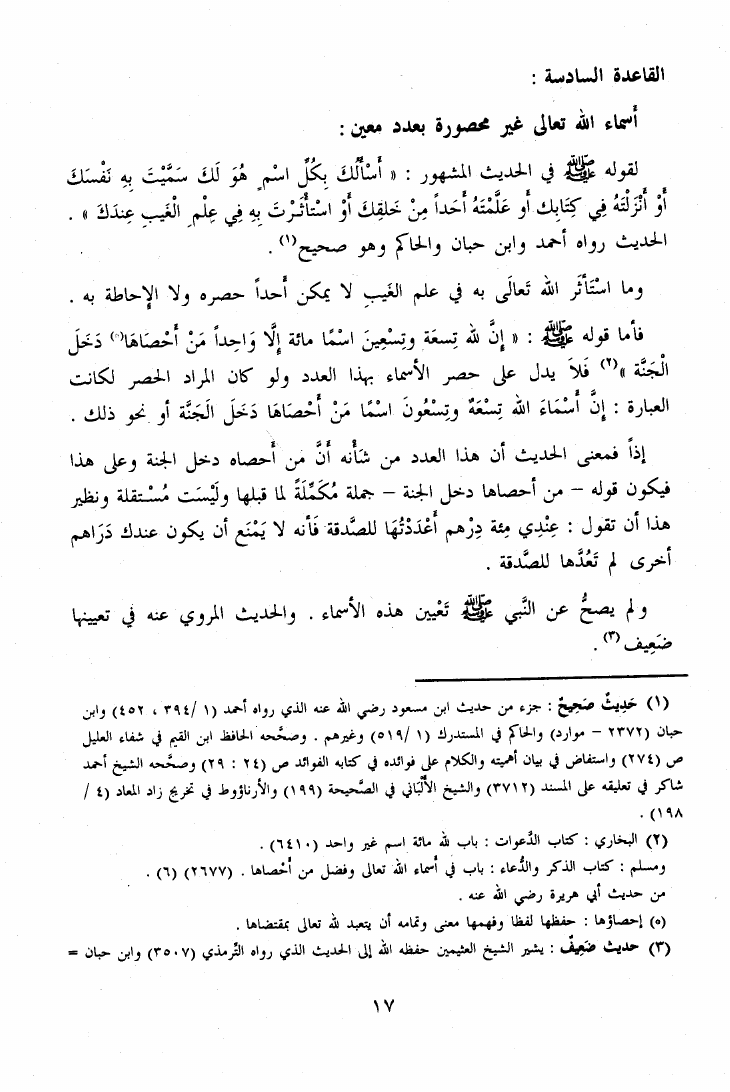 القاعدة السادسة :
أَسماء الله تعالى غير محصورة بعدد معين :
لقوله ﷺ في الحديث المشهور : « أَسْأَلُكَ بِكُلِّ اسْمٍ هُوَ لَكَ سَمَّيْتَ بِهِ نَفْسَكَ
أَوْ أَنْزَلْتَهُ فِي كِتَابِك أو عَلَّمْتَهُ أَحَداً مِنْ خَلقِكَ أَوْ اسْتَأْثَرْتَ بِهِ فِي عِلْمِ الْغَيبِ عِندَكَ » .
الحديث رواه أحمد وابن حبان والحاكم وهو صحيح(١) .
وما اسْتَأثَر الله تَعالَى به في علم الغَيبِ لا يمكن أَحداً حصره ولا الإِحاطة به .
فأما قوله ﷺ : « إِنَّ لله تِسعَة وتِسْعِينَ اسْمًا مائة إِلَّا وَاحِداً مَنْ أَحْصَاهَا(٥) دَخَلَ
الْجَنَّة »(٢) فَلاَ يدل على حصر الأسماء بهذا العدد ولو كان المراد الحصر لكانت
العبارة : إِنَّ أَسْمَاءَ الله تِسْعَةٌ وتِسْعُونَ اسْمًا مَنْ أَحْصَاهَا دَخَلَ الْجَنَّة أو نحو ذلك .
إذاً فمعنى الحديث أن هذا العدد من شَأْنه أَنَّ من أَحصاه دخل الجنة وعلى هذا
فيكون قوله – من أحصاها دخل الجنة – جملة مُكَمِّلَةً لما قبلها ولَيْسَت مُسْتقلة ونظير
هذا أن تقول : عِنْدِي مِئة دِرْهم أَعْدَدْتُهَا للصَّدقة فَأنه لا يَمْنَع أن يكون عندك دَرَاهم
أخرى لم تَعُدَّها للصَّدقة .
ولم يصحُّ عن النَّبي ﷺ تَعْيين هذه الأسماء . والحديث المروي عنه في تعيينها
ضَعِيف(٣) .
(١) حَدِيثٌ صَحِيحٌ : جزء من حديث ابن مسعود رضي الله عنه الذي رواه أحمد (١ /٣٩٤ ، ٤٥٢) وابن
حبان (٢٣٧٢ – موارد) والحاكم في المستدرك (١ /٥١٩) وغيرهم . وصحَّحه الحافظ ابن القيم في شفاء العليل
ص (٢٧٤) واستفاض في بيان أهميته والكلام على فوائده في كتابه الفوائد ص (٢٤ : ٢٩) وصحَّحه الشيخ أحمد
شاكر في تعليقه على المسند (٣٧١٢) والشيخ الأَلْبَاني في الصَّحيحة (١٩٩) والأرناؤوط في تخريج زاد المعاد (٤ /
١٩٨) .
(٢) البخاري : كتاب الدَّعوات : باب لله مائة اسم غير واحد (٦٤١٠) .
ومسلم : كتاب الذكر والدُّعاء : باب في أسماء الله تعالى وفضل من أحْصاها . (٢٦٧٧) (٦) .
من حديث أبي هريرة رضي الله عنه .
(٥) إحصاؤها : حفظها لفظا وفهمها معنى وتمامه أن يتعبد لله تعالى بمقتضاها .
(٣) حديث ضَعِيفٌ : يشير الشيخ العثيمين حفظه الله إلى الحديث الذي رواه التِّرمذي (٣٥٠٧) وابن حبان =
١٧